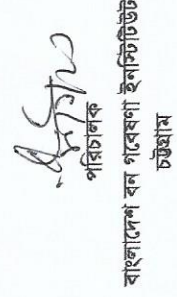 পরিচালক
বাংলাদেশ বন গবেষণা ইনস্টিটিউট
চট্টগ্রাম